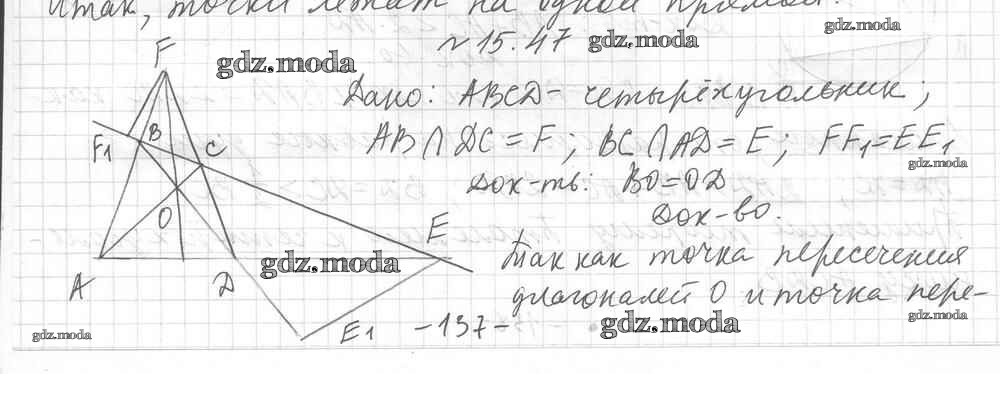 Итак, точки лежат на одной прямой.
№15.47
gdz.moda
gdz.moda
gdz.moda
F
Дано: ABCD - четырёхугольник;
F1 B C
AB ∩ DC = F; BC ∩ AD = E; FF1 = EE1
gdz.moda
Док-ть: BO = OD
O
Док-во.
E
Так как точка пересечения
gdz.moda
A D
диагоналей O и точка пере-
gdz.moda
E1
-137-
gdz.moda
gdz.moda